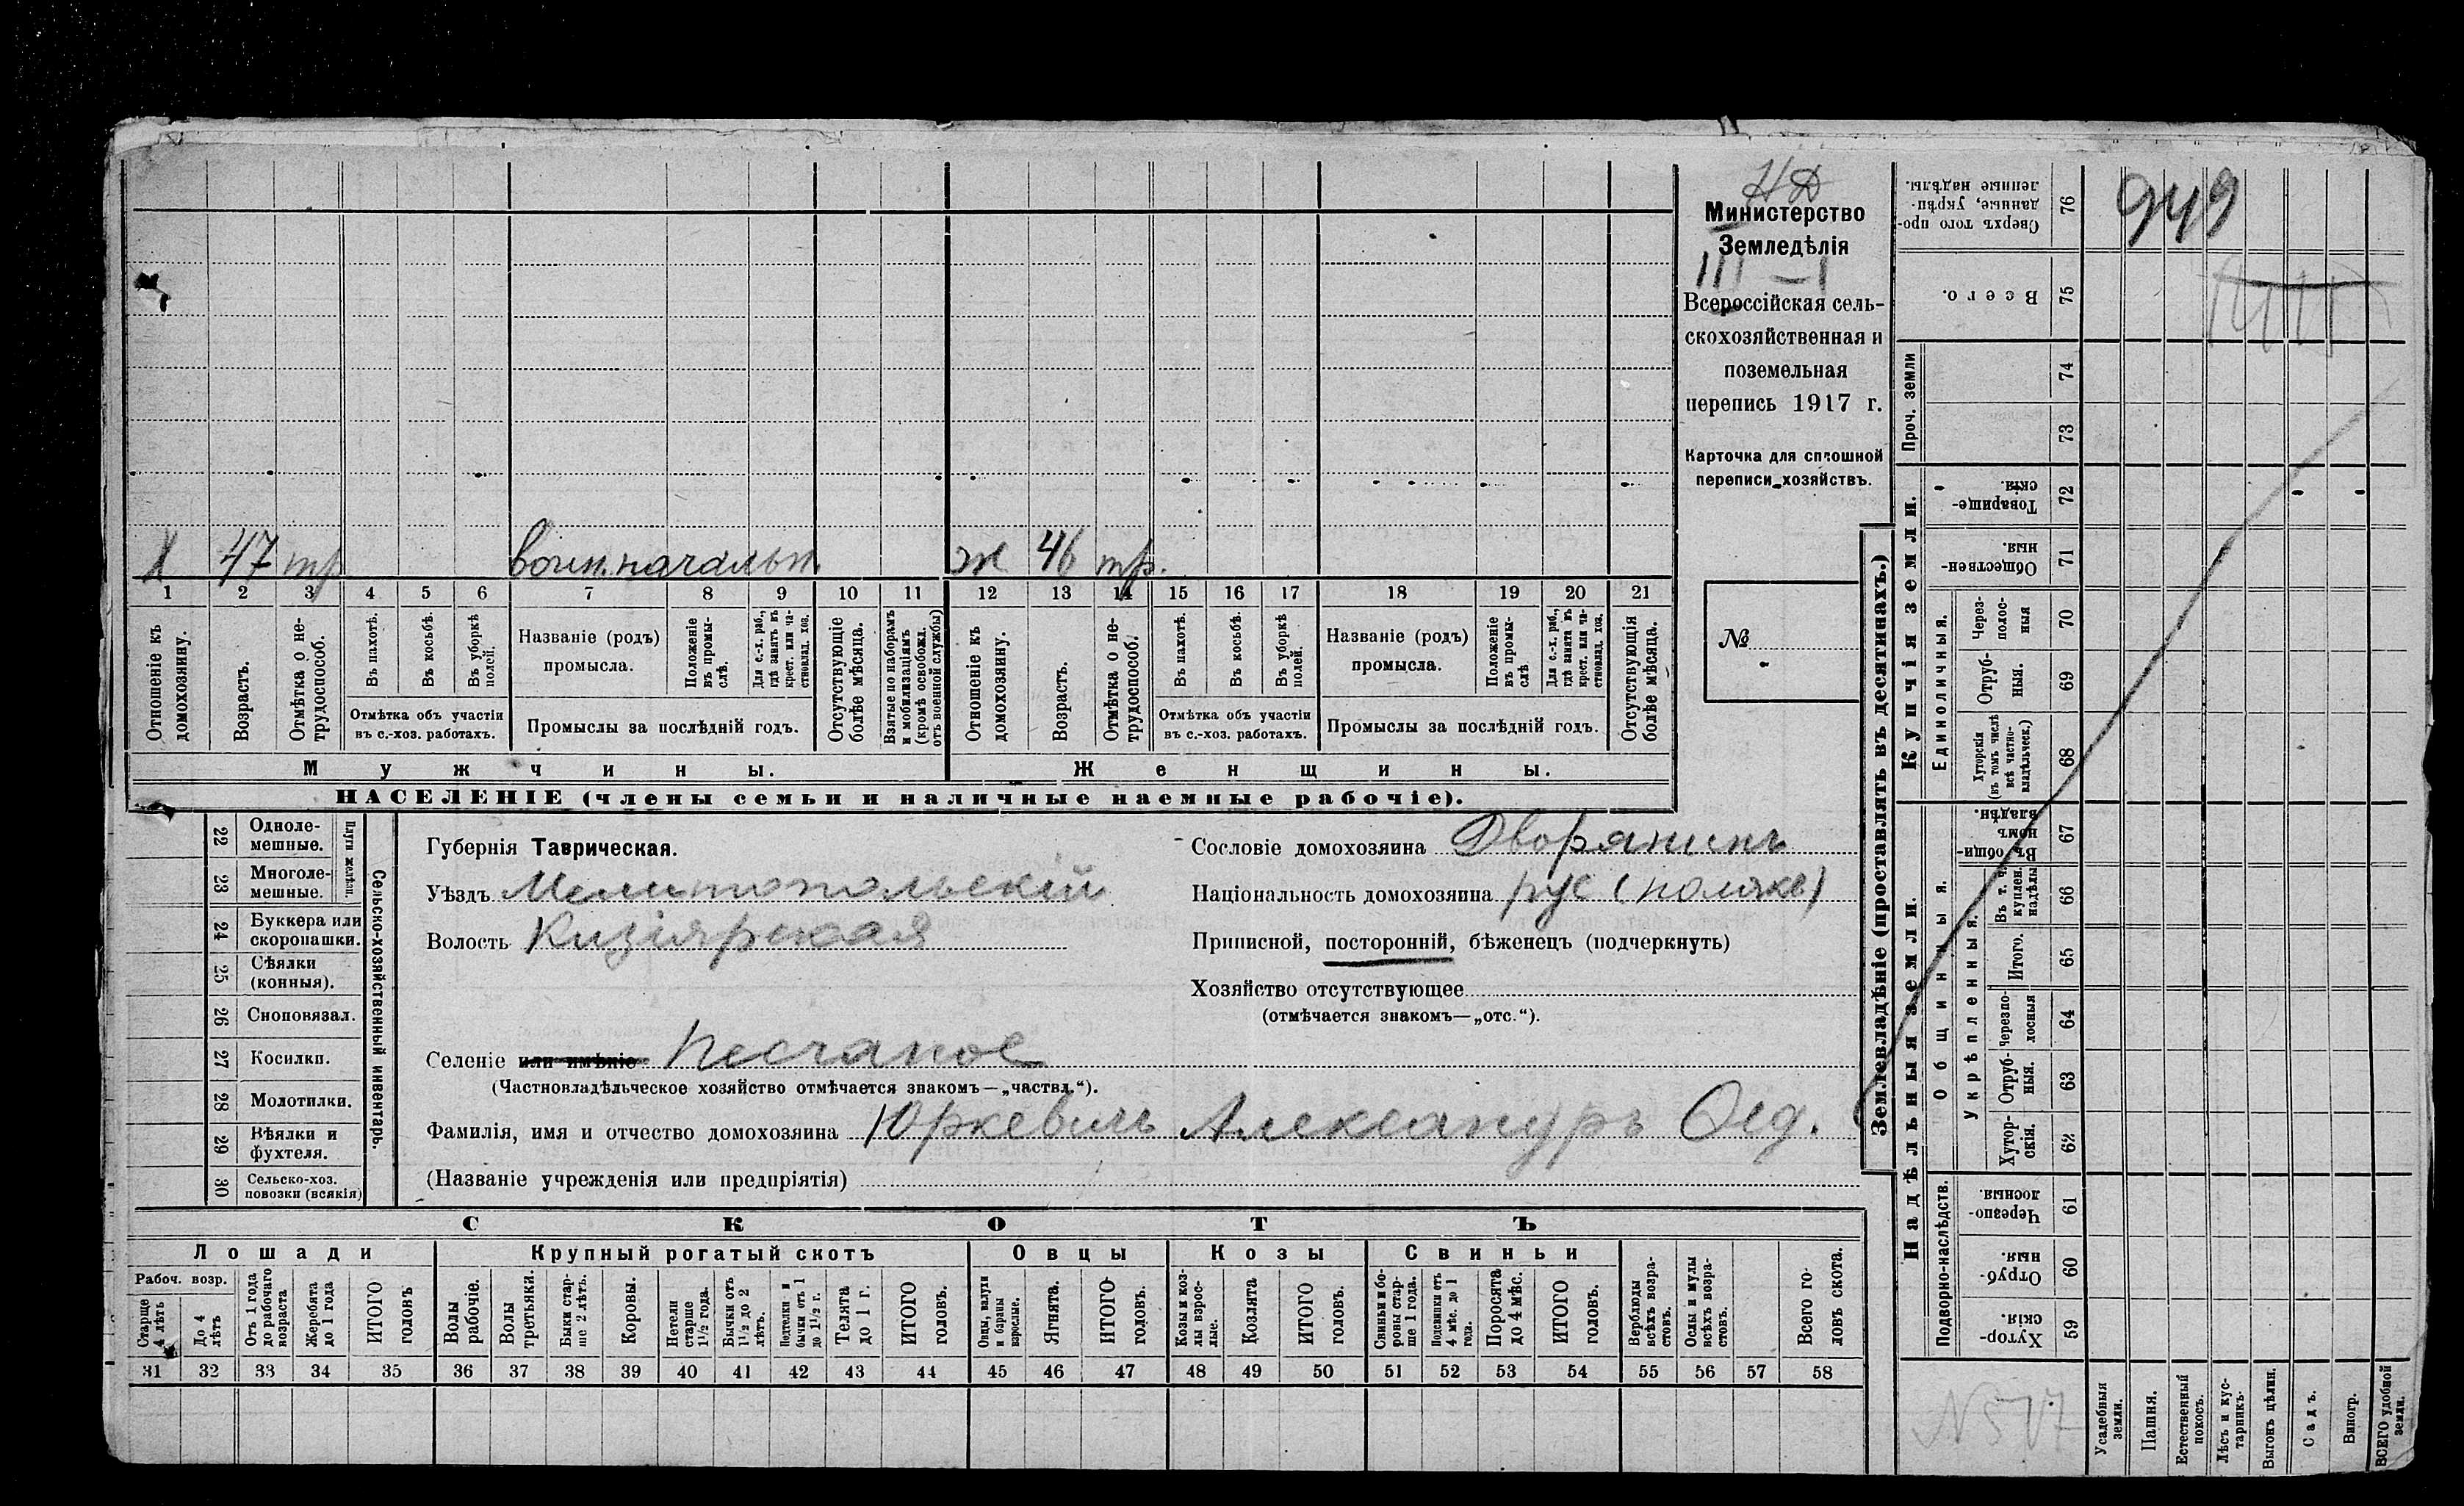 НД
Министерство
Земледѣлія
III — I
Всероссійская сель-
скохозяйственная и
поземельная
перепись 1917 г.
Карточка для сплошной
переписи хозяйствъ.
№
Х 47 тр воин. начальн. ж 46 тр.
1 2 3 4 5 6 7 8 9 10 11 12 13 14 15 16 17 18 19 20 21
Отношеніе къ домохозяину.
Возрастъ.
Отмѣтка о не-трудоспособ.
Въ пахотѣ.
Въ косьбѣ.
Въ уборкѣ полей.
Отмѣтка объ участіи
въ с.-хоз. работахъ.
Названіе (родъ)
промысла.
Положеніе въ промы-слѣ.
Для с.-х. раб., гдѣ занятъ въ крест. или ча-стновлад. хоз.
Промыслы за послѣдній годъ.
Отсутствующіе болѣе мѣсяца.
Взятые по наборамъ и мобилизаціямъ (кромѣ освобожд. отъ военной службы)
Отношеніе къ домохозяину.
Возрастъ.
Отмѣтка о не-трудоспособ.
Въ пахотѣ.
Въ косьбѣ.
Въ уборкѣ полей.
Отмѣтка объ участіи
въ с.-хоз. работахъ.
Названіе (родъ)
промысла.
Положеніе въ промы-слѣ
Для с.-х. раб., гдѣ занята въ крест. или ча-стновлад. хоз.
Промыслы за послѣдній годъ.
Отсутствующія болѣе мѣсяца.
Мужчины.
Женщины.
НАСЕЛЕНІЕ (члены семьи и наличные наемные рабочіе).
Сельско-хозяйственный инвентарь.
Плуги желѣзн.
22 Одноле-мешные.
23 Многоле-мешные.
24 Буккера или скоропашки.
25 Сѣялки (конныя).
26 Сноповязал.
27 Косилки.
28 Молотилки.
29 Вѣялки и фухтеля.
30 Сельско-хоз. повозки (всякія)
Губернія Таврическая.
Уѣздъ Мелитопольскій
Волость Кизіярская
Селеніе или имѣніе Песчаное
(Частновладѣльческое хозяйство отмѣчается знакомъ—„частвл.“).
Фамилія, имя и отчество домохозяина Юркевичъ Александръ
(Названіе учрежденія или предпріятія)
Сословіе домохозяина Дворянинъ
Національность домохозяина рус (полякъ)
Приписной, посторонній, бѣженецъ (подчеркнуть)
Хозяйство отсутствующее
(отмѣчается знакомъ—„отс.“).
СКОТЪ
Лошади
Крупный рогатый скотъ
Овцы
Козы
Свиньи
Рабоч. возр.
Старше 4 лѣтъ
До 4 лѣтъ
Отъ 1 года до рабочаго возраста
Жеребята до 1 года
ИТОГО головъ
Волы рабочіе.
Волы третьяки.
Быки стар-ше 2 лѣтъ.
Коровы.
Нетели старше 1½ года.
Бычки отъ 1½ до 2 лѣтъ.
Подтелки и бычки отъ 1 до 1½ г.
Телята до 1 г.
ИТОГО головъ.
Овцы, валухи и бараны взрослые.
Ягнята.
ИТОГО головъ.
Козы и коз-лы взрос-лые.
Козлята
ИТОГО головъ.
Свиньи и бо-ровы стар-ше 1 года.
Подсвинки отъ 4 мѣс. до 1 года.
Поросята до 4 мѣс.
ИТОГО головъ.
Верблюды всѣхъ возра-стовъ.
Ослы и мулы всѣхъ возра-стовъ.
Всего го-ловъ скота.
31 32 33 34 35 36 37 38 39 40 41 42 43 44 45 46 47 48 49 50 51 52 53 54 55 56 57 58
Землевладѣніе (проставлять въ десятинахъ.)
949
76 Сверхъ того про-данные, укрѣп-ленные надѣлы.
75 Всего.
Проч. земли
74
73
Купчія земли.
72 Товарище-скія.
71 Обществен-ныя.
Единоличныя.
70 Через-полос-ныя
69 Отруб-ныя.
68 Хуторскія (въ томъ числѣ всѣ частно-владѣльческ.)
Надѣльныя земли.
Общинныя.
67 Въ общин-номъ владѣн.
Укрѣпленныя.
66 Въ т. ч. куплен. надѣлы
65 Итого.
64 Черезпо-лосныя
63 Отруб-ныя.
62 Хутор-скія.
Подворно-наслѣдств.
61 Черезпо-лосныя.
60 Отруб-ныя.
59 Хутор-скія
Усадебныя земли.
Пашня.
Естественный покосъ.
Лѣсъ и кус-тарникъ.
Выгонъ цѣлин.
Садъ.
Виногр.
ВСЕГО удобной земли.